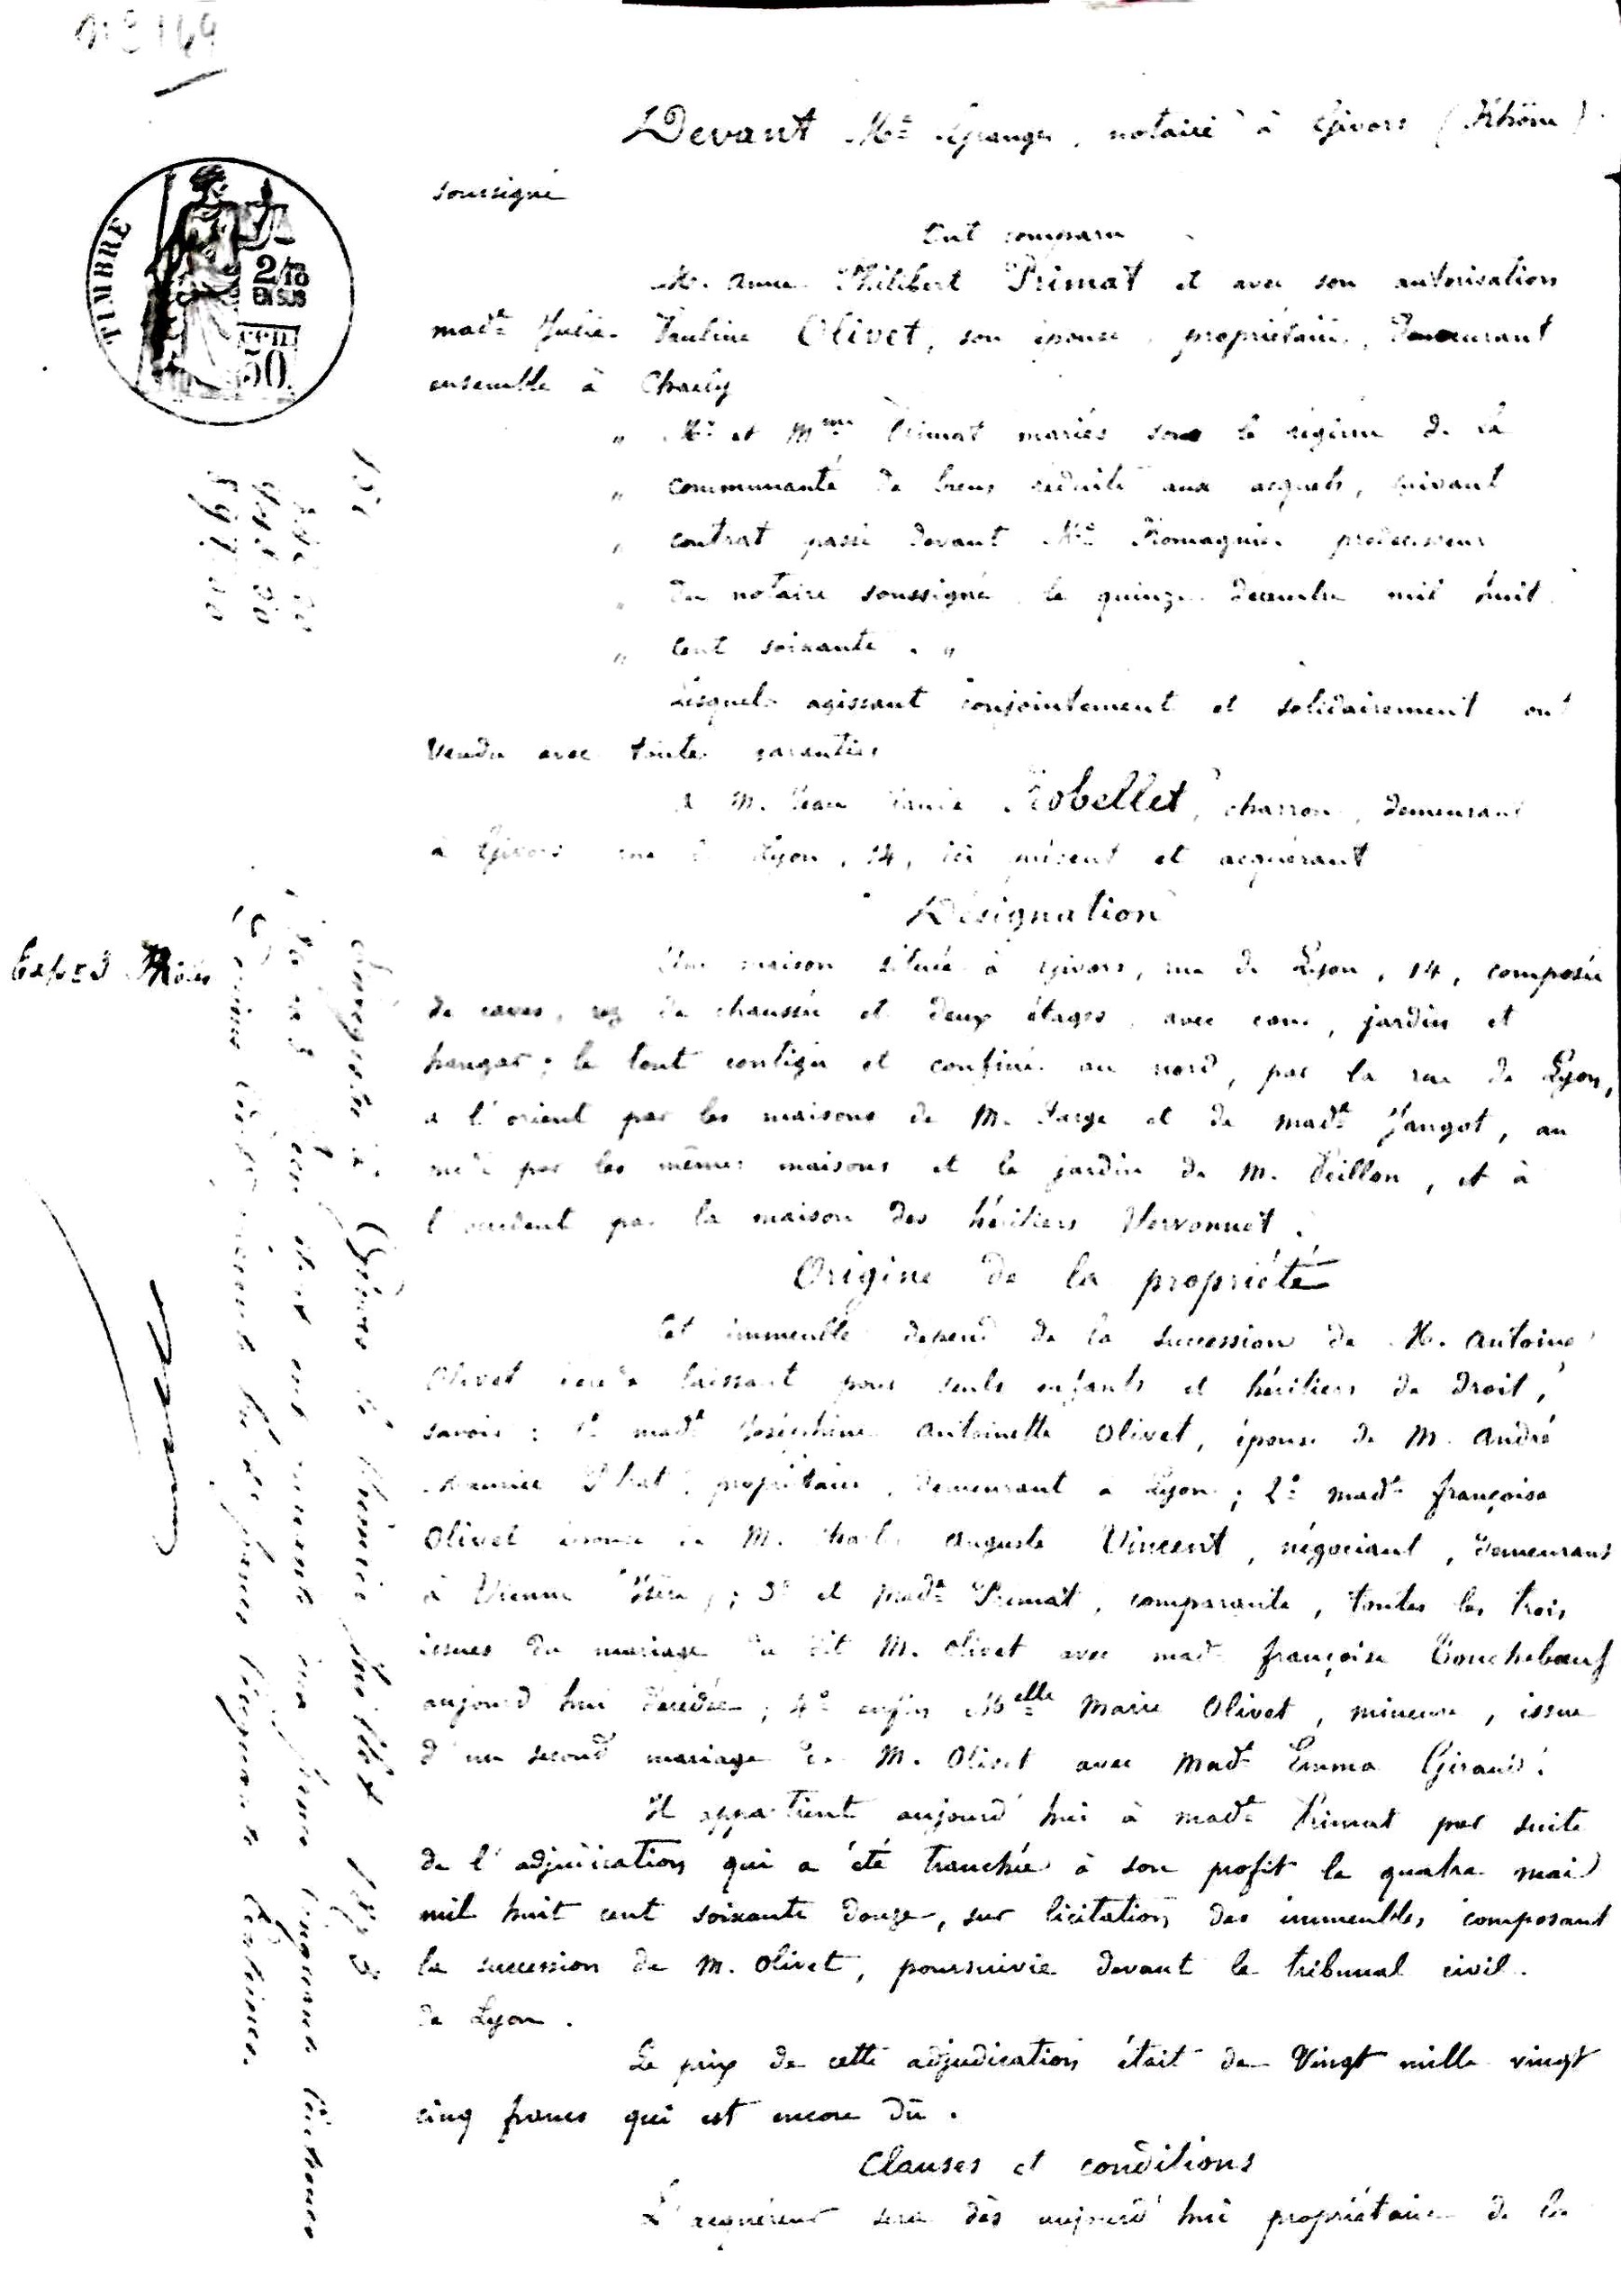 N° 169
Devant Me Granger, notaire à Givors (Rhône)
soussigné
Ont comparu
M. Anne Philibert Primat et avec son autorisation
made Julie Pauline Olivet, son épouse, propriétaires, demeurant
ensemble à Charly
" Mr et Mme Primat mariés sous le régime de la
" communauté de biens réduite aux acquets, suivant
" contrat passé devant Me Romagnier prédécesseur
" du notaire soussigné le quinze décembre mil huit
" cent soixante . "
Lesquels agissant conjointement et solidairement ont
vendu avec toutes garanties
à M. Jean Robellet, charron, demeurant
à Givors rue de Lyon, 14, ici présent et acquérant
Désignation
Une maison située à Givors, rue de Lyon, 14, composée
de caves, rez de chaussée et deux étages, avec cour, jardin et
hangar ; le tout contigu et confiné au nord, par la rue de Lyon,
à l'orient par les maisons de M. Farge et de made Jangot, au
midi par les mêmes maisons et le jardin de M. Peillon, et à
l'occident par la maison des héritiers Vervonnet.
Origine de la propriété
Cet immeuble dépend de la succession de M. Antoine
Olivet décédé laissant pour seuls enfants et héritiers de droit,
savoir : 1° made Joséphine Antoinette Olivet, épouse de M. André
Maurice propriétaire, demeurant à Lyon ; 2° made françoise
Olivet épouse de M. Charles Auguste Vincent, négociant, demeurant
à Vienne Isère ; 3° et made Primat, comparante, toutes les trois
issues du mariage du dit M. Olivet avec made françoise Touchebœuf
aujourd'hui décédée ; 4° enfin Melle Marie Olivet, mineure, issue
d'un second mariage de M. Olivet avec made Emma Giraud.
Il appartient aujourd'hui à made Primat par suite
de l'adjudication qui a été tranchée à son profit le quatre mai
mil huit cent soixante douze, sur licitation des immeubles composant
la succession de M. Olivet, poursuivie devant le tribunal civil
de Lyon.
Le prix de cette adjudication était de Vingt mille vingt
cinq francs qui est encore dû.
Clauses et conditions
L'acquéreur sera dès aujourd'hui propriétaire de la
TIMBRE
2/10
EN SUS
50